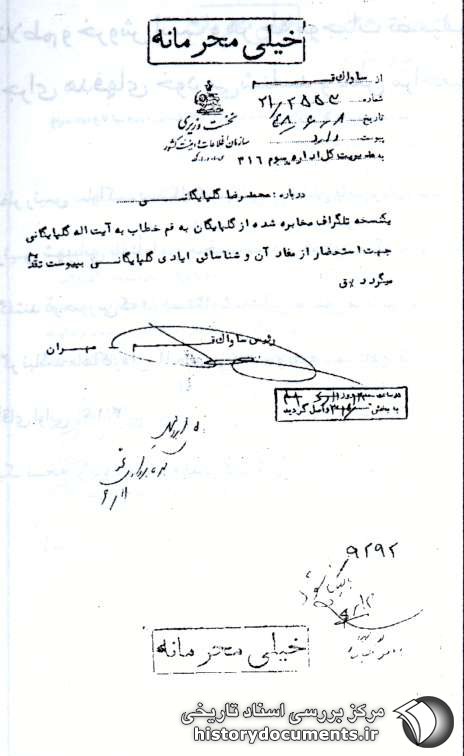 خیلی محرمانه
از ساواک قم
شماره ۲۱/۲۵۵۳
تاریخ ۴۸/۶/۸
پیوست دارد
نخست وزیری
سازمان اطلاعات و امنیت کشور
به مدیریت کل اداره سوم ۳۱۶
درباره : محمدرضا گلپایگانی
یکنسخه تلگراف مخابره شده از گلپایگان به قم خطاب به آیت اله گلپایگانی
جهت استحضار از مفاد آن و شناسائی ایادی گلپایگانی بپیوست تقدیم
میگردد
رئیس ساواک قم - مهران
واصل گردید
۹۲۹۲
خیلی محرمانه
مرکز بررسی اسناد تاریخی
historydocuments.ir